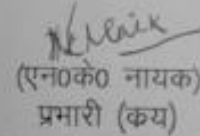 (एन0के0 नायक)
प्रभारी (कय)